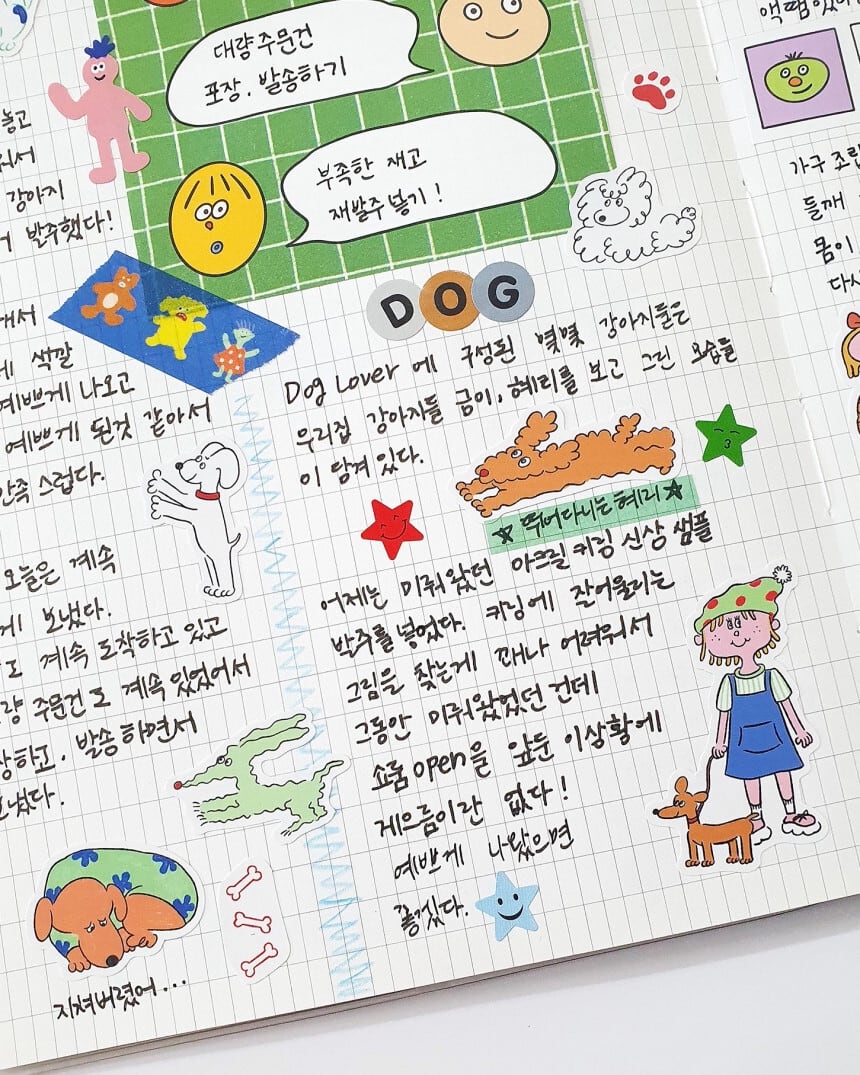 대량 주문건
포장, 발송하기
부족한 재고
재발주 넣기!
놓고
강아지
발주했다!
싹깔
예쁘게 나오고
예쁘게 된것 같아서
만족스럽다.
오늘은 계속
보냈다.
계속 도착하고 있고
주문건도 계속 있었어서
발송하면서
지쳐버렸어...
DOG
Dog Lover 에 구성된 몇몇 강아지들은
우리집 강아지들 금이, 혜리를 보고 그린 모습들
이 담겨 있다.
☆ 뛰어다니는 혜리 ★
어제는 미뤄왔던 아크릴 키링 신상 샘플
발주를 넣었다. 키링에 잘어울리는
그림을 찾는게 꽤나 어려워서
그동안 미뤄왔었던 건데
쇼룸 open을 앞둔 이상황에
게으름이란 없다!
예쁘게 나왔으면
좋겠다.
들깨
몸이